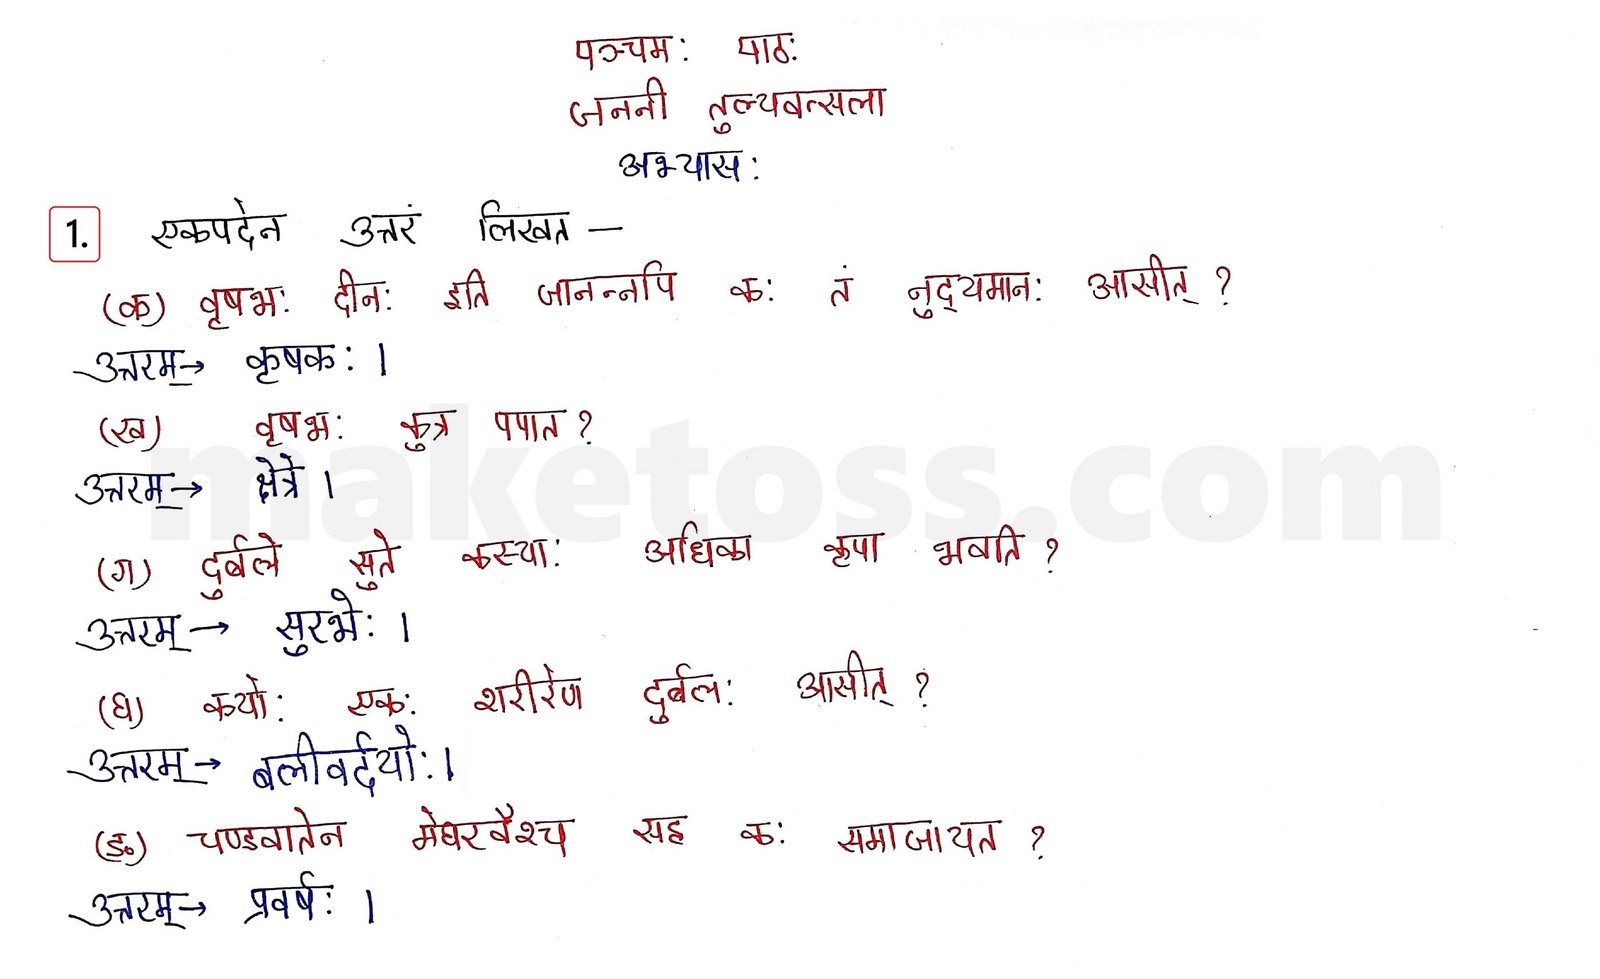 पञ्चमः पाठः
जननी तुल्यवत्सला
अभ्यासः
1. एकपदेन उत्तरं लिखत —
(क) वृषभः दीनः इति जानन्नपि कः तं नुद्यमानः आसीत् ?
उत्तरम् → कृषकः ।
(ख) वृषभः कुत्र पपात ?
उत्तरम् → क्षेत्रे ।
(ग) दुर्बले सुते कस्याः अधिका कृपा भवति ?
उत्तरम् → सुरभेः ।
(घ) कयोः एकः शरीरेण दुर्बलः आसीत् ?
उत्तरम् → बलीवर्दयोः ।
(ङ) चण्डवातेन मेघरवैश्च सह कः समाजायत ?
उत्तरम् → प्रवर्षः ।
maketoss.com